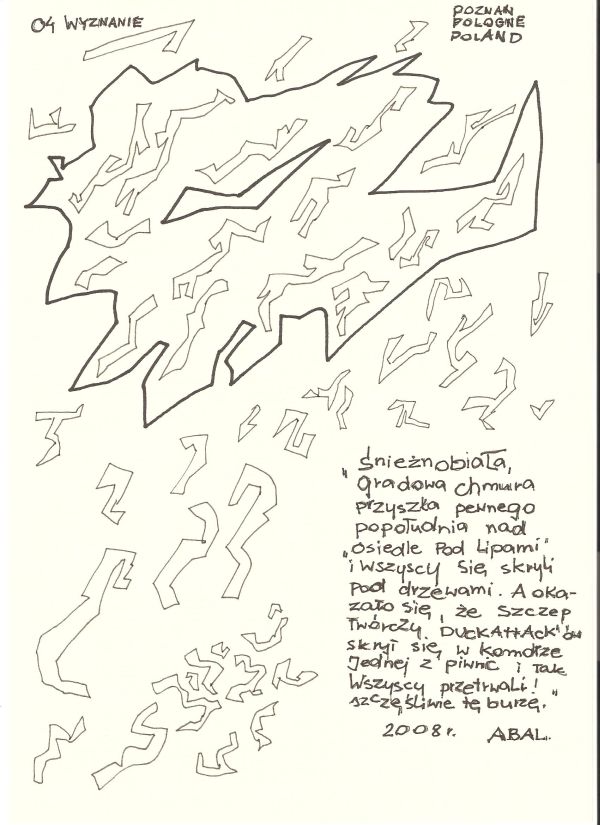 04 WYZNANIE
POZNAŃ
POLOGNE
POLAND
„Śnieżnobiała,
gradowa chmura
przyszła pewnego
popołudnia nad
„Osiedle Pod Lipami"
i wszyscy się skryli
pod drzewami. A oka-
zało się, że Szczep
Twórczy DUCKATTAck'ów
skrył się w komórze
jednej z piwnic i tak
wszyscy przetrwali!
szczęśliwie tę burzę."
2008r. ABAL.